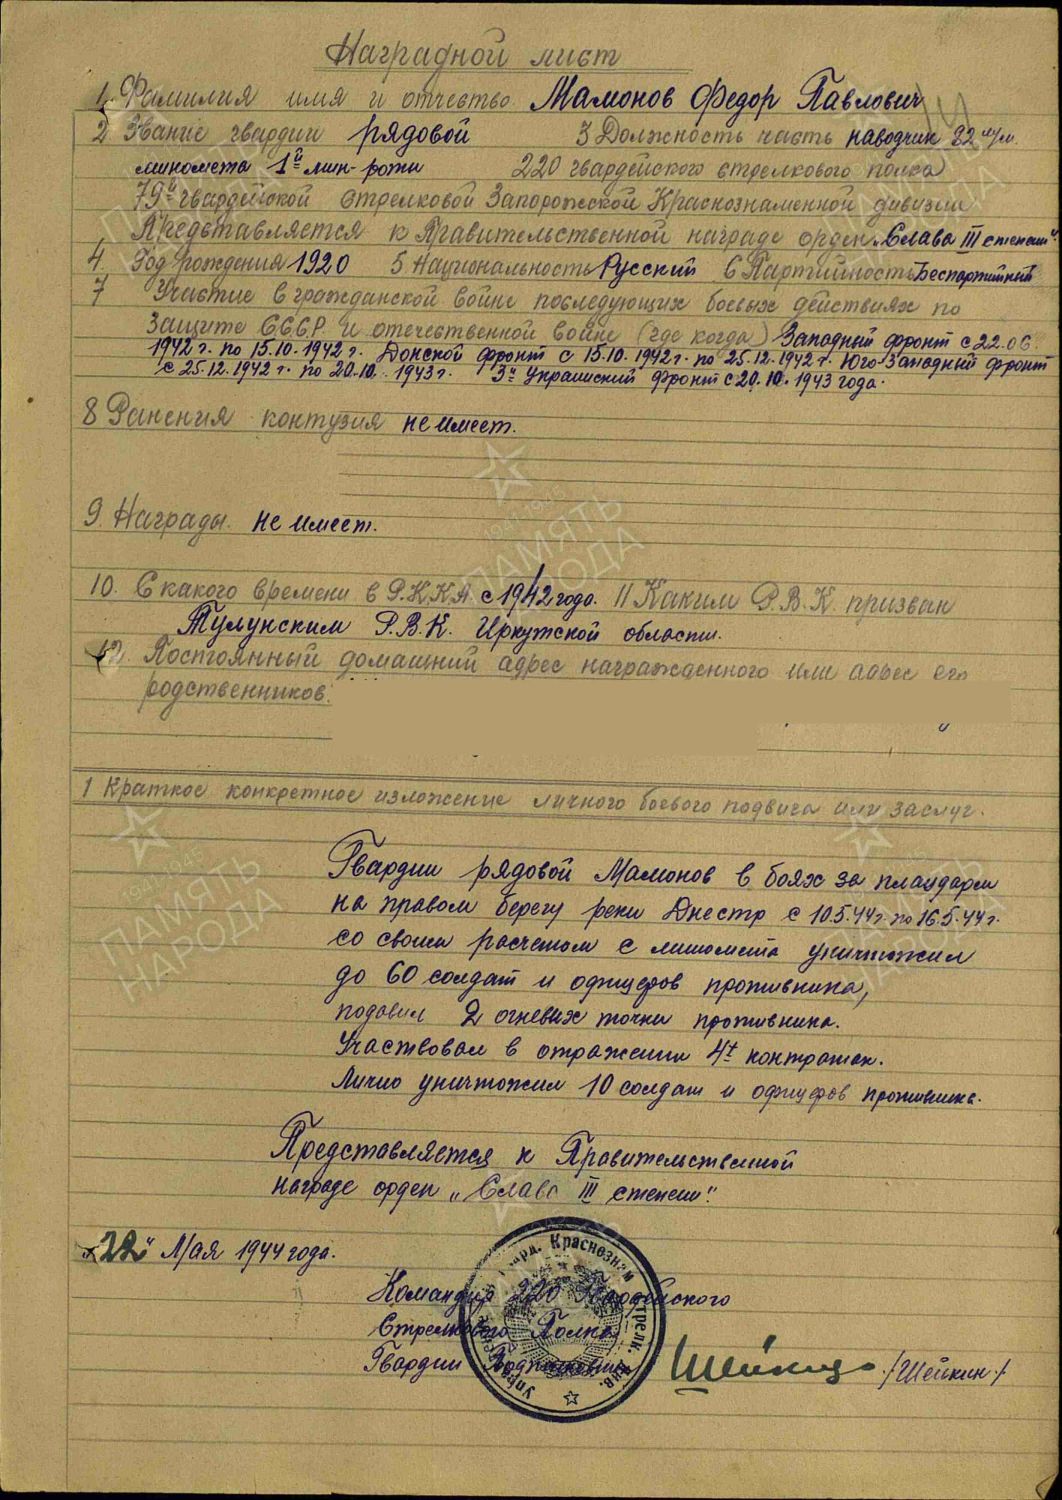 Наградной лист
1. Фамилия имя и отчество Мамонов Федор Павлович
2 Звание гвардии рядовой 3 Должность часть наводчик 82 м/м
миномета 1й мин-роты 220 гвардейского стрелкового полка
79й гвардейской стрелковой Запорожской Краснознаменной дивизии
Представляется к Правительственной награде орден „Слава III степени"
4. Год рождения 1920 5 Национальность Русский 6 Партийность Беспартийный
7 Участие в гражданской войне последующих боевых действиях по
защите СССР и отечественной войне (где когда) Западный фронт с 22.06.
1942 г. по 15.10.1942 г. Донской фронт с 15.10.1942 г. по 25.12.1942 г. Юго-Западный фронт
с 25.12.1942 г. по 20.10.1943 г. 3й Украинский фронт с 20.10.1943 года.
8 Ранения контузия не имеет.
9. Награды. не имеет.
10. С какого времени в Р.К.К.А с 1942 года. 11 Каким Р.В.К. призван
Тулунским Р.В.К. Иркутской области.
12. Постоянный домашний адрес награжденного или адрес его
родственников.
1 Краткое конкретное изложение личного боевого подвига или заслуг.
Гвардии рядовой Мамонов в боях за плацдарм
на правом берегу реки Днестр с 10.5.44 г. по 16.5.44 г.
со своим расчетом с миномета уничтожил
до 60 солдат и офицеров противника,
подавил 2 огневых точки противника.
Участвовал в отражении 4х контратак.
Лично уничтожил 10 солдат и офицеров противника.
Представляется к Правительственной
награде орден „Слава III степени".
„22" Мая 1944 года.
Командир 220 Гвардейского
Стрелкового Полка
Гвардии Подполковник Шейкин /Шейкин/
Гвард. Краснознам. Стрелк. Див.
ПАМЯТЬ
НАРОДА
1941 1945
ПАМЯТЬ
НАРОДА
1941 1945
ПАМЯТЬ
НАРОДА